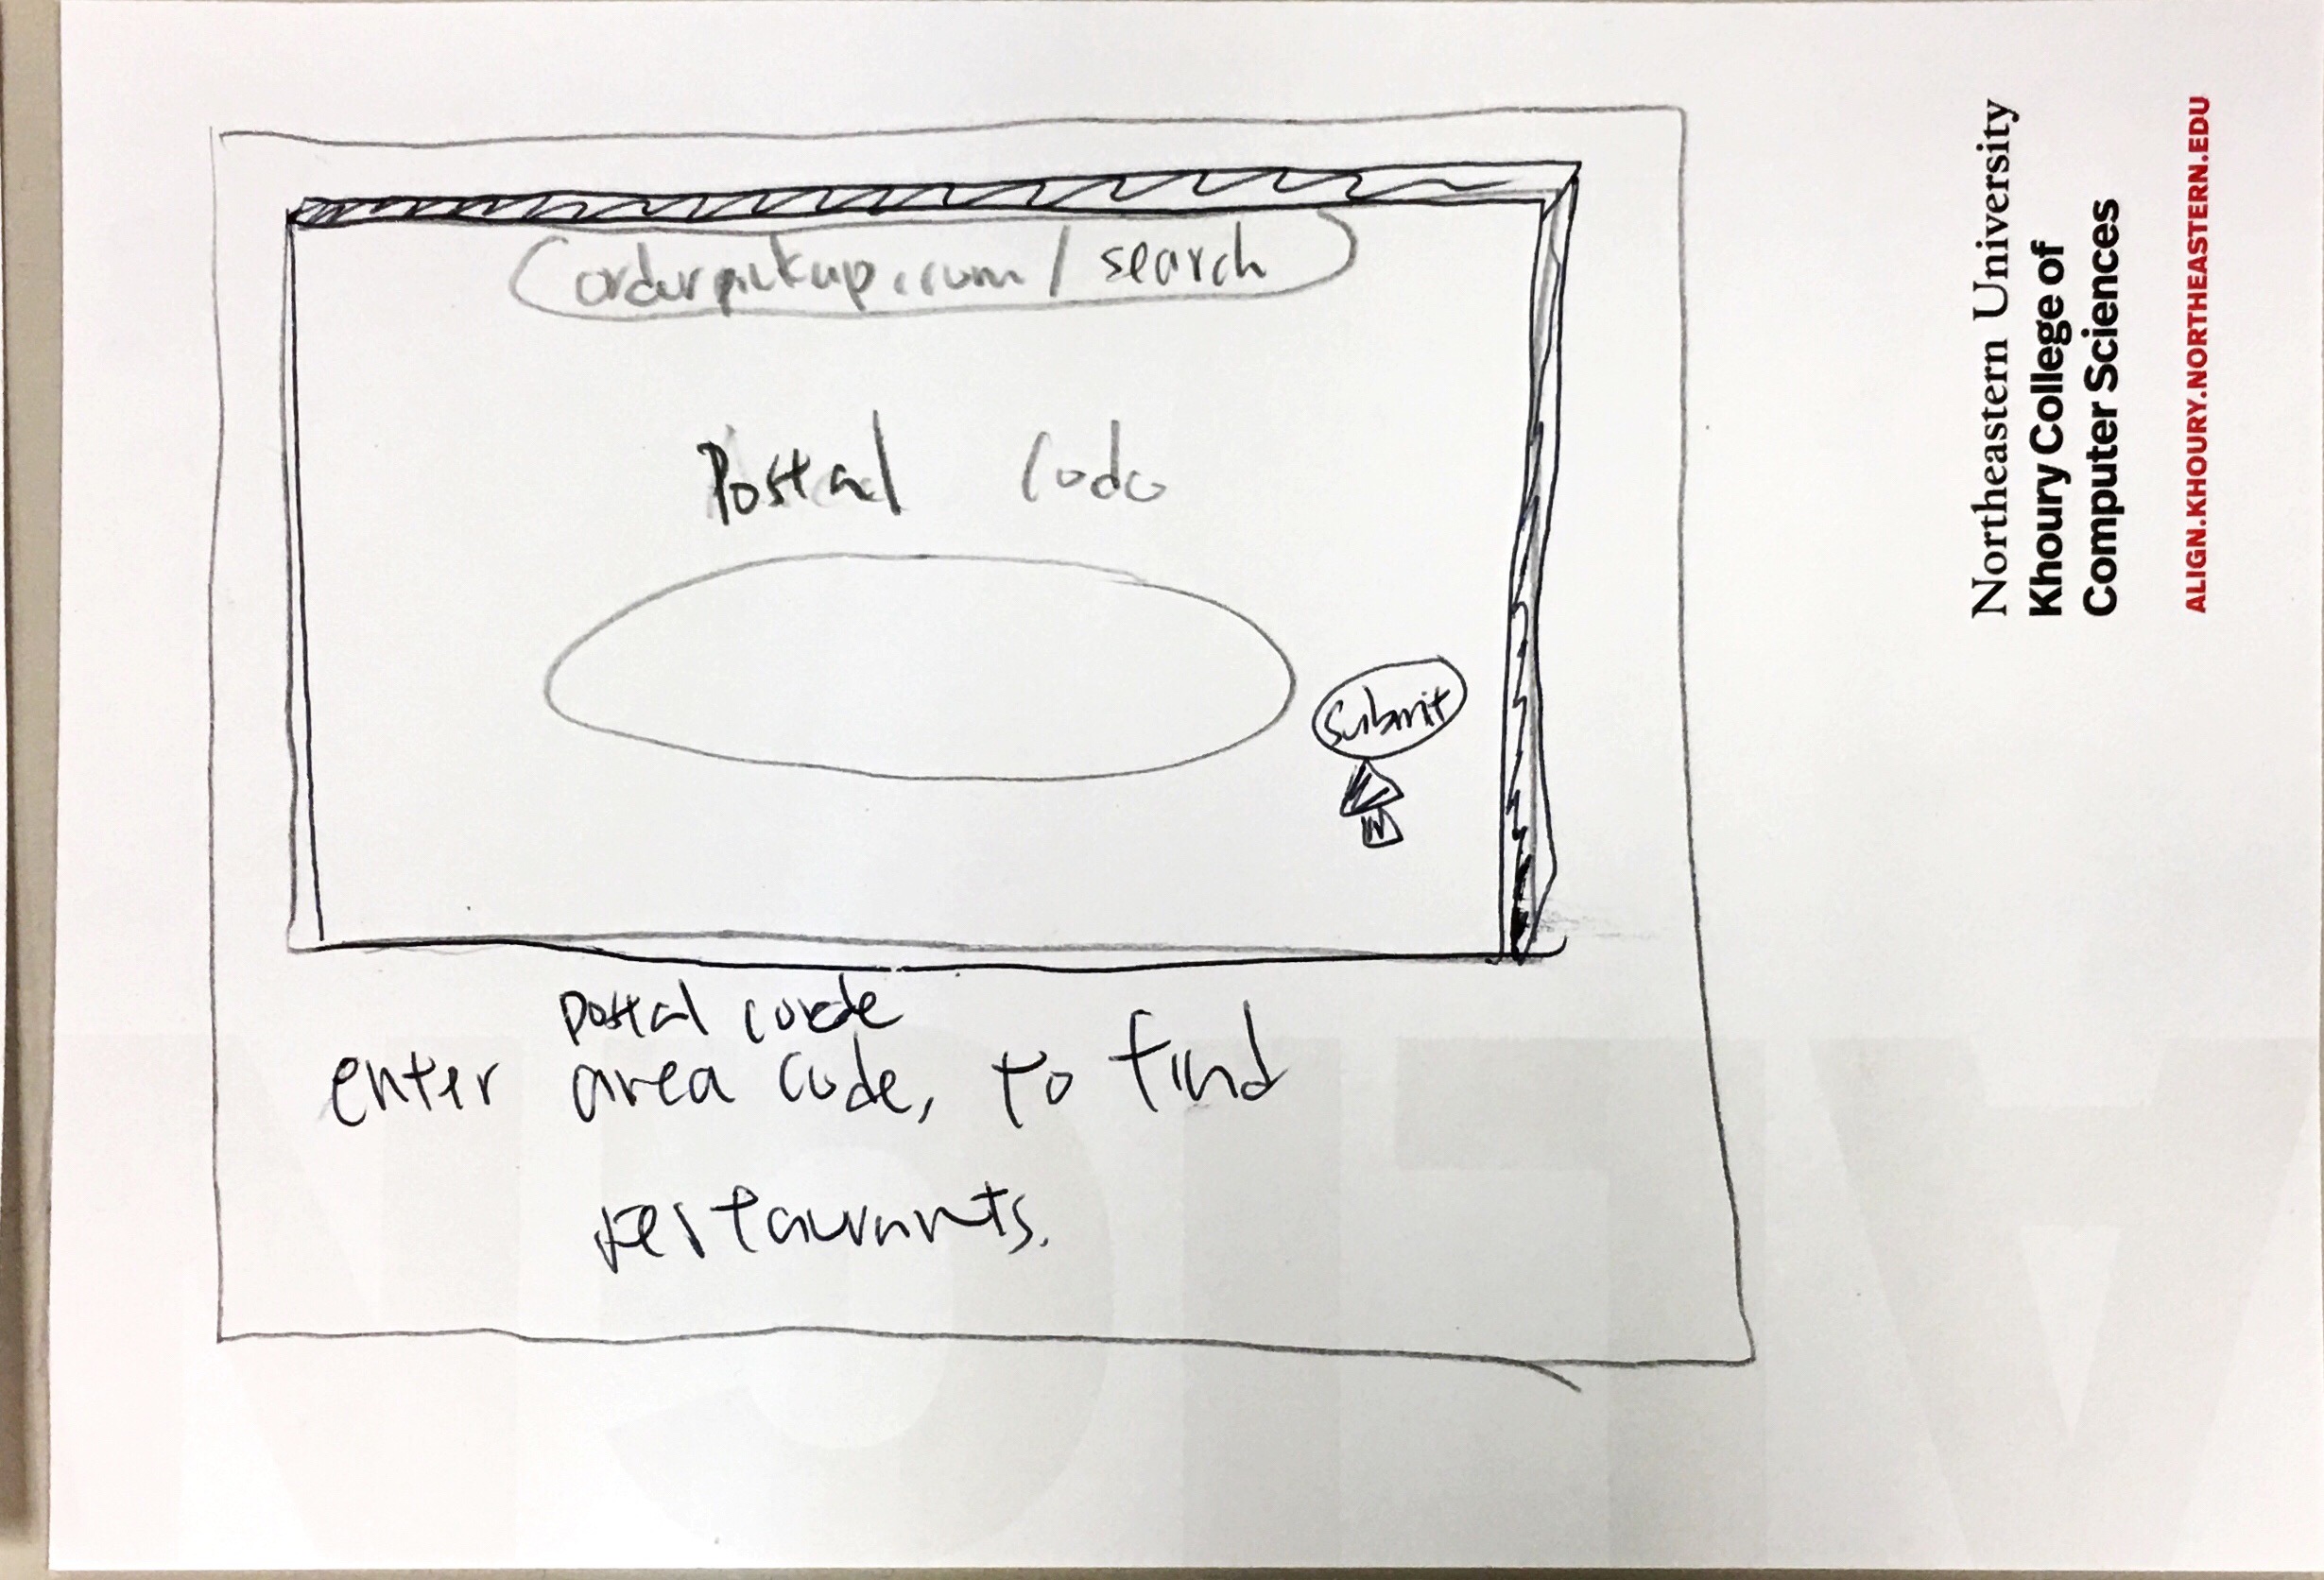 orderpickup.com/search
Postal Code
Submit
postal code
enter area code, to find
restaurants.
Northeastern University
Khoury College of
Computer Sciences
ALIGN.KHOURY.NORTHEASTERN.EDU
ALIGN